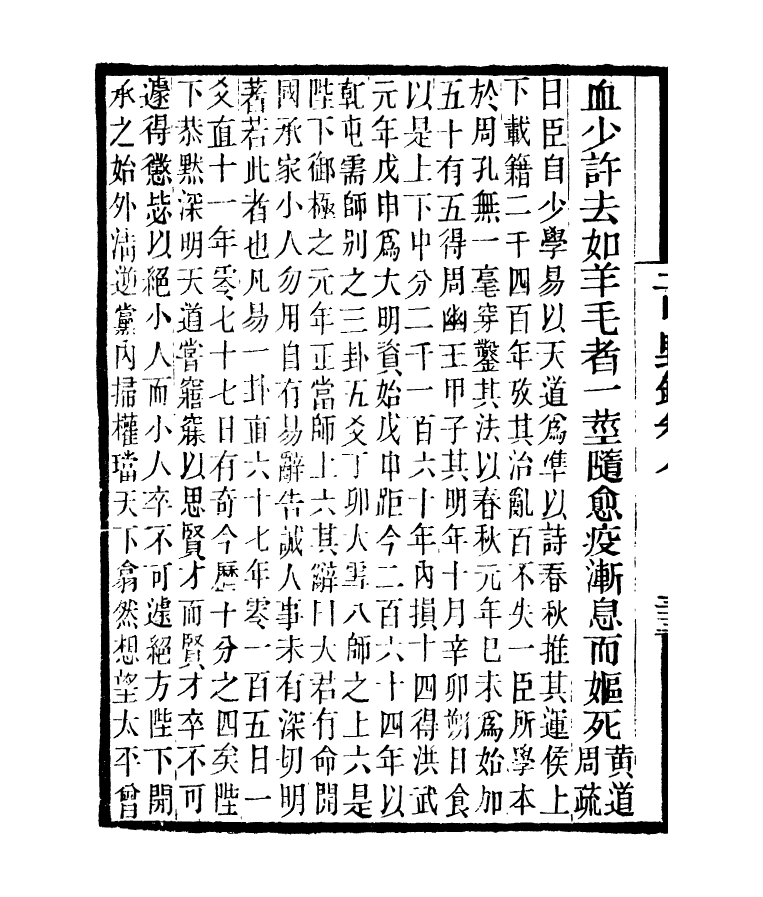 血少許去如羊毛者一莖隨愈疫漸息而嫗死黃道周疏
日臣自少學易以天道爲凖以詩春秋推其運候上
下載籍二千四百年攷其治亂百不失一臣所學本
於周孔無一毫穿鑿其法以春秋元年已未爲始加
五十有五得周幽王甲子其明年十月辛卯朔日食
以是上下中分二千一百六十年內損十四得洪武
元年戊申爲大明資始戊申距今二百六十四年以
乾屯需師别之三卦五爻丁卯大雪入師之上六是
陛下御極之元年正當師上六其辭曰大君有命開
國承家小人勿用自有易辭告誡人事未有深切明
著若此者也凡易一卦直六十七年零一百五日一
爻直十一年零七十七日有奇今歷十分之四矣陛
下恭默深明天道嘗寤寐以思賢才而賢才卒不可
遽得懲毖以絕小人而小人卒不可遽絕方陛下開
承之始外清逆黨內掃權璫天下翕然想望太平曾